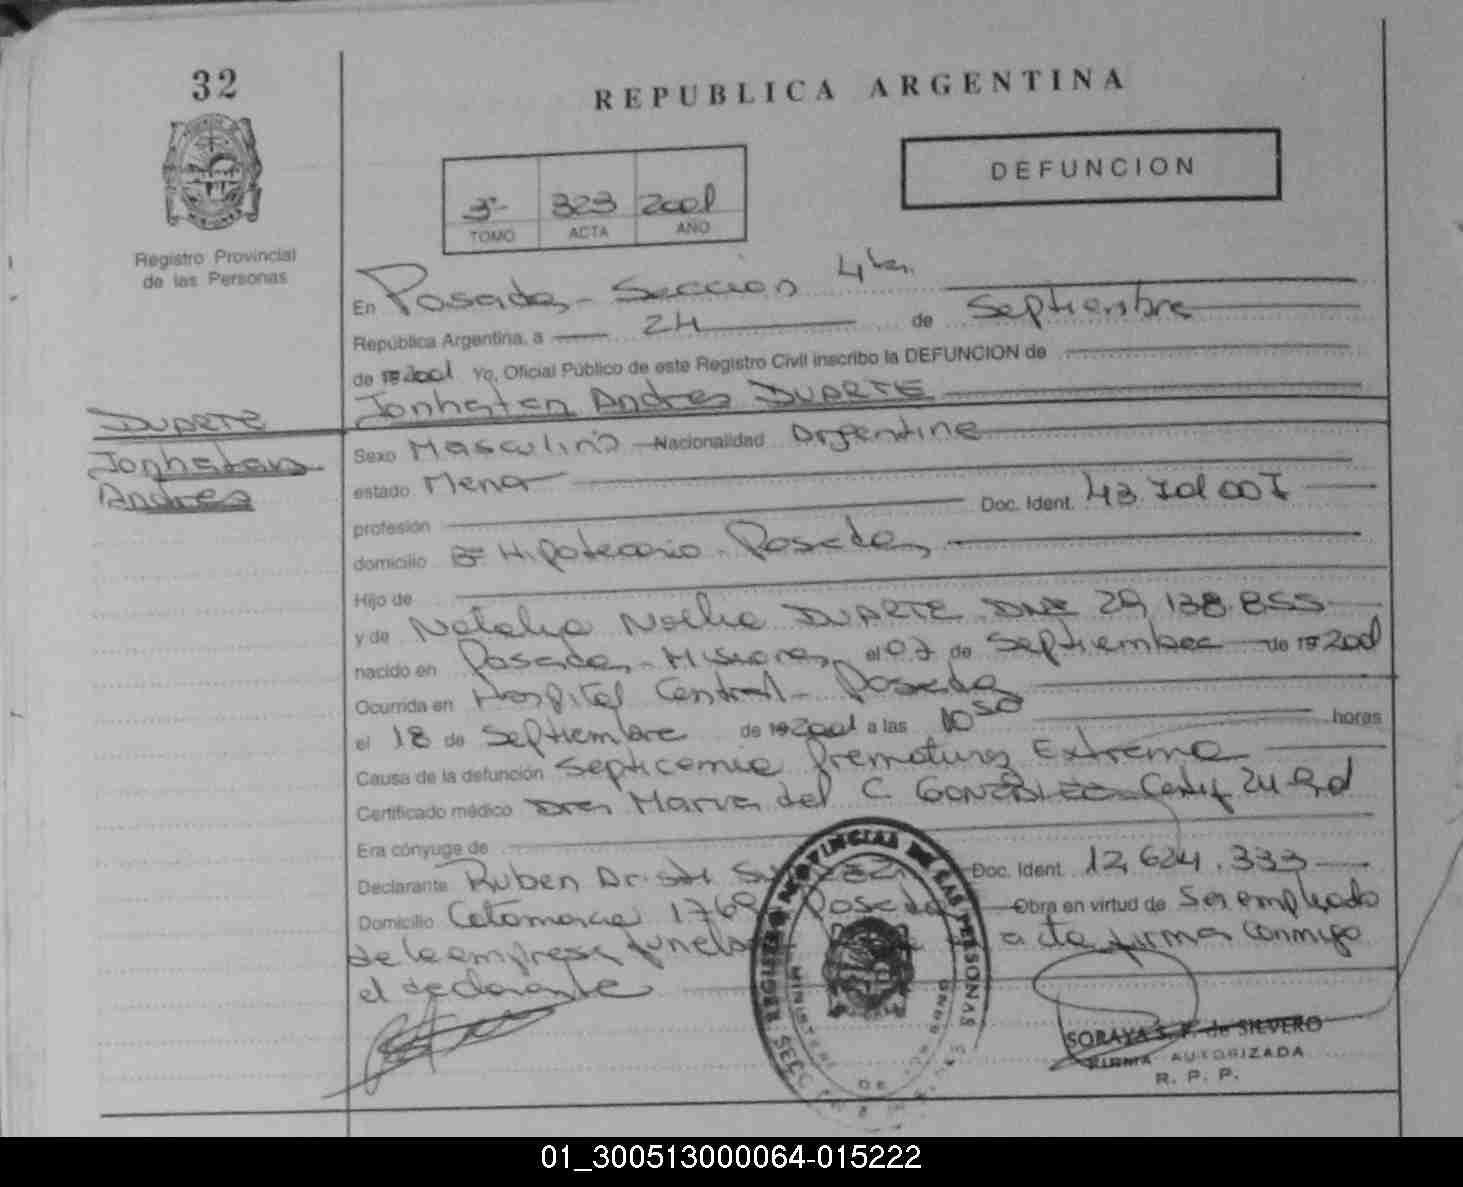 32
REPUBLICA ARGENTINA
DEFUNCION
3º- 323 2001
TOMO ACTA AÑO
Registro Provincial
de las Personas
En Posadas - Sección 4ta.
República Argentina, a 24 de Septiembre
de 19 2001 Yo, Oficial Público de este Registro Civil inscribo la DEFUNCION de
Jonhatan Andres DUARTE
DUARTE
Jonhatan
Andres
Sexo Masculino Nacionalidad Argentina
estado Menor
profesión Doc. Ident. 43.701.007
domicilio Bº Hipotecario - Posadas
Hijo de
y de Natalia Noelia DUARTE DNI 29.138.855
nacido en Posadas - Misiones el 07 de Septiembre de 19 2001
Ocurrida en Hospital Central - Posadas
el 18 de Septiembre de 19 2001 a las 10 50 horas
Causa de la defunción Septicemia Prematurez Extrema
Certificado médico Dra. Maria del C. GONZALEZ Certif
Era cónyuge de
Declarante Ruben Doc. Ident. 12.624.333
Domicilio Catamarca Posadas Obra en virtud de Ser empleado
de la empresa acta firma conmigo
el declarante
REGISTRO PROVINCIAL DE LAS PERSONAS
MINISTERIO DE
SORAYA S. F. de SILVERO
FIRMA AUTORIZADA
R. P. P.
01_300513000064-015222